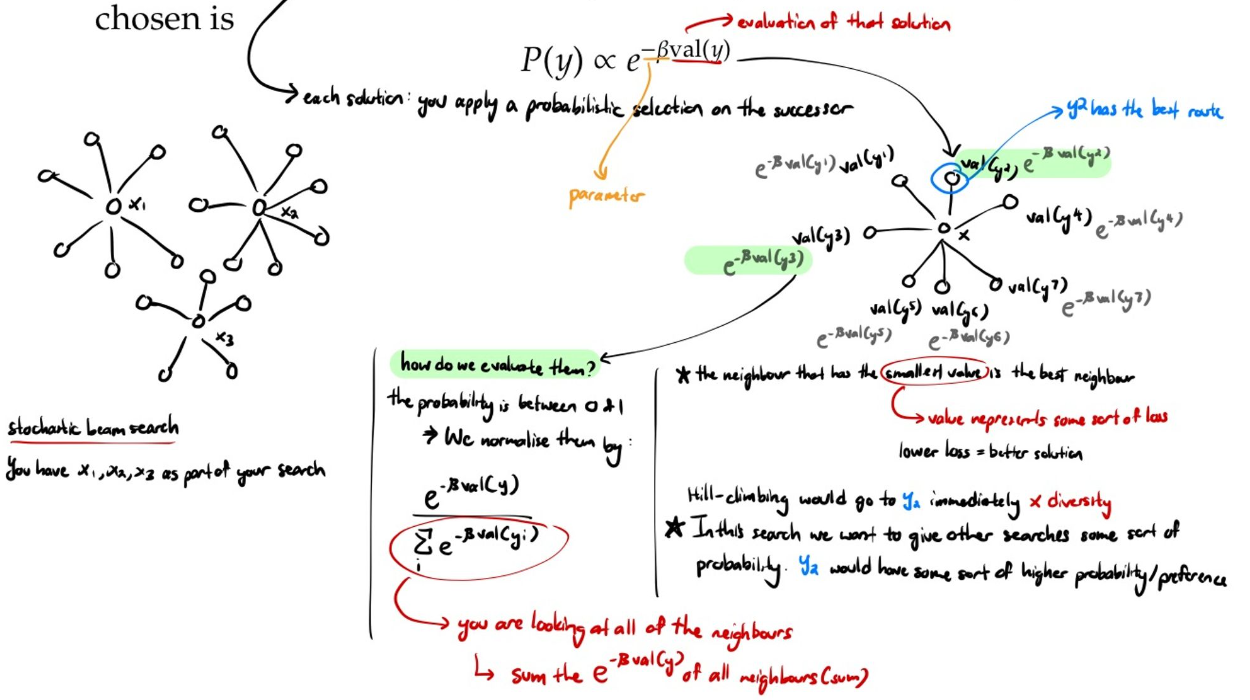 chosen is
evaluation of that solution
P(y) ∝ e^{-βval(y)}
each solution: you apply a probabilistic selection on the successor
y2 has the best route
parameter
x1
x2
x3
e^{-βval(y1)} val(y1)
val(y2) e^{-βval(y2)}
val(y3)
e^{-βval(y3)}
x
val(y4) e^{-βval(y4)}
val(y7) e^{-βval(y7)}
val(y5) val(y6)
e^{-βval(y5)} e^{-βval(y6)}
stochastic beam search
You have x1, x2, x3 as part of your search
how do we evaluate them?
the probability is between 0 & 1
→ We normalise them by:
e^{-βval(y)}
Σ e^{-βval(yi)}
i
you are looking at all of the neighbours
↳ sum the e^{-βval(y)} of all neighbours (sum)
* the neighbour that has the smallest value is the best neighbour
value represents some sort of loss
lower loss = better solution
Hill-climbing would go to y2 immediately x diversity
* In this search we want to give other searches some sort of
probability. y2 would have some sort of higher probability/preference